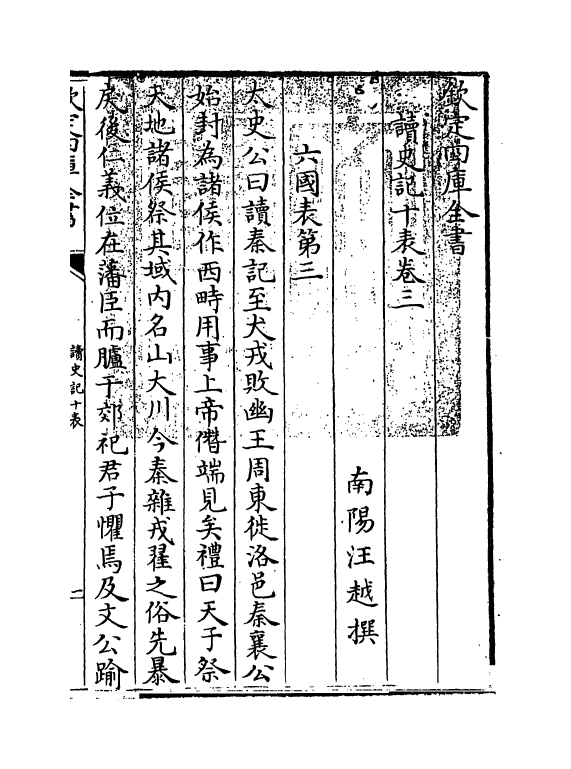 欽定四庫全書
讀史記十表卷三
南陽汪越撰
六國表第三
太史公曰讀秦記至犬戎敗幽王周東徙洛邑秦襄公
始封為諸侯作西畤用事上帝僭端見矣禮曰天子祭
天地諸侯祭其域內名山大川今秦雜戎翟之俗先暴
戾後仁義位在藩臣而臚于郊祀君子懼焉及文公踰
讀史記十表
二